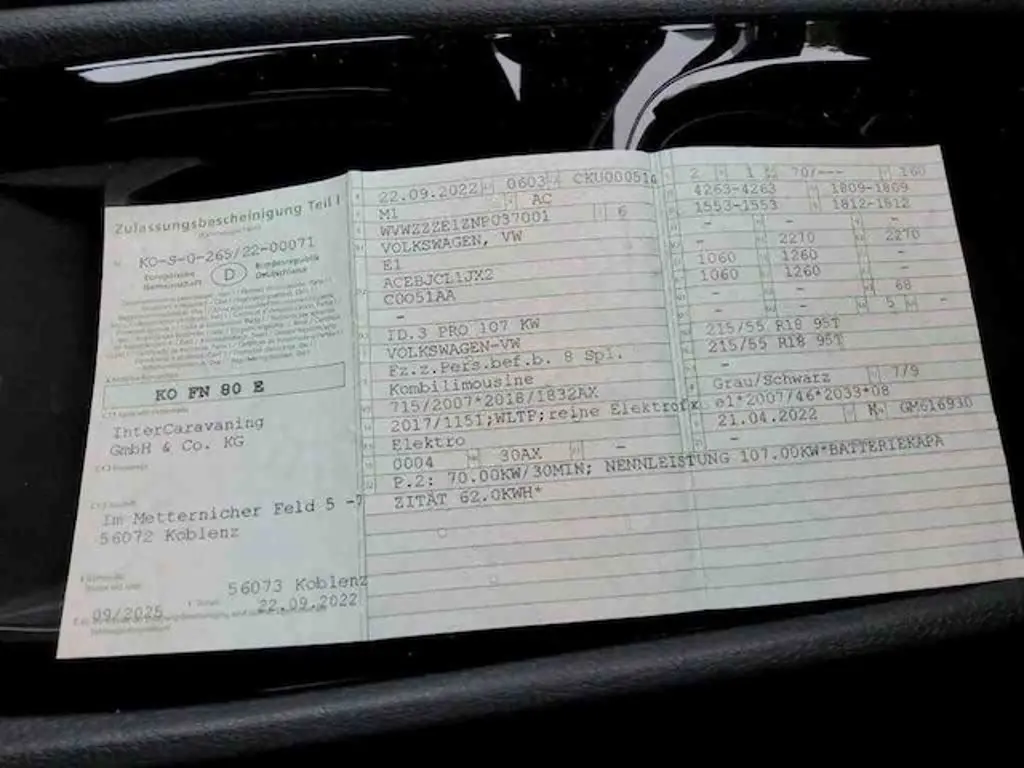 Zulassungsbescheinigung Teil I
KO-S-0-265/22-00071
Europäische Gemeinschaft
D
Bundesrepublik Deutschland
KO FN 80 E
InterCaravaning
GmbH & Co. KG
Im Metternicher Feld 5 -7
56072 Koblenz
56073 Koblenz
09/2025
22.09.2022
22.09.2022 0603 CKU000514
M1 AC
WVWZZZE1ZNP037001 6
VOLKSWAGEN, VW
E1
ACEBJCL1JX2
C0051AA
-
ID.3 PRO 107 KW
VOLKSWAGEN-VW
Fz.z.Pers.bef.b. 8 Spl.
Kombilimousine
715/2007*2018/1832AX
2017/1151;WLTP;reine Elektrofz
Elektro
0004 30AX -
P.2: 70.00KW/30MIN; NENNLEISTUNG 107.00KW*BATTERIEKAPA
ZITÄT 62.0KWH*
2 1 70/--- 160
4263-4263 1809-1809
1553-1553 1812-1812
- -
- 2270 2270
1060 1260
1060 1260 -
- - 68
- - 5 -
215/55 R18 95T
215/55 R18 95T
-
Grau/Schwarz 7/9
e1*2007/46*2033*08
21.04.2022 K GM616930
-